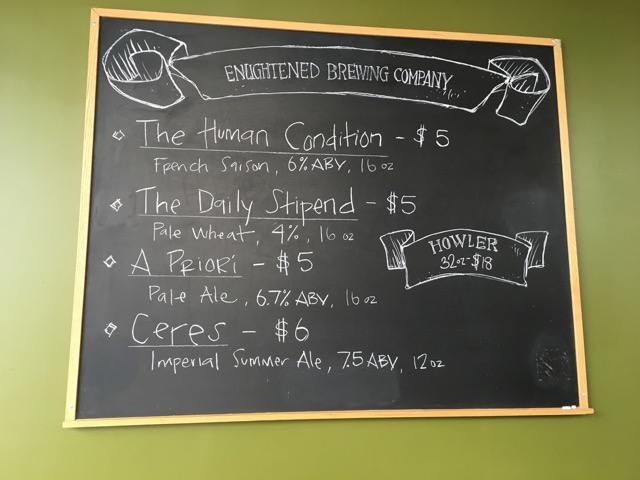 ENLIGHTENED BREWING COMPANY
The Human Condition - $5
French Saison, 6% ABV, 16 oz
The Daily Stipend - $5
Pale Wheat, 4%, 16 oz
A PRIORI - $5
Pale Ale, 6.7% ABV, 16 oz
Ceres - $6
Imperial Summer Ale, 7.5 ABV, 12 oz
HOWLER
32oz-$18